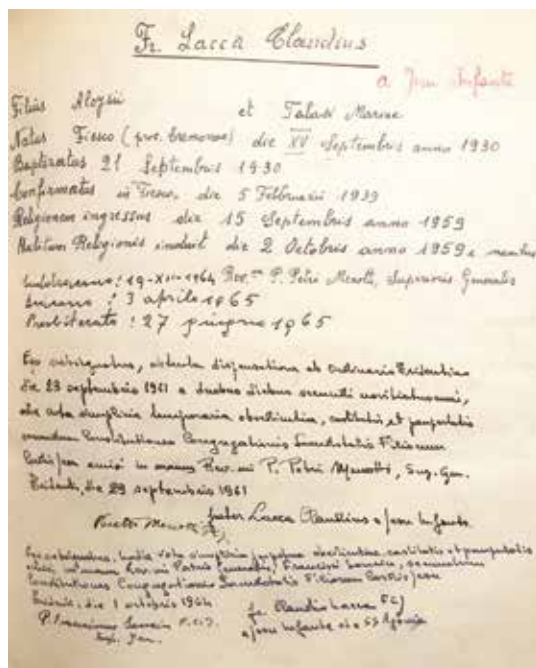 Fr. Lacca Claudius
a Jesu Infante
Filius Aloysii et Talassi Marine
Natus Fiesco (prov. Cremonae) die XV Septembris anno 1930
Baptizatus 21 Septembris 1930
Confirmatus in Fiesco, die 5 Februarii 1939
Religionem ingressus die 15 Septembris anno 1959
Habitum Religionis induit die 2 Octobris anno 1959 e manibus
19-XII-1964 Rev.mo P. Petri Menotti, Superioris Generalis
Diacono : 3 aprile 1965
Presbiterato : 27 giugno 1965
Ego subsignatus, obtenta dispensatione ab Ordinario Tridentino
die 23 septembris 1961 a duobus diebus secundi novitiatus anni,
vota simplicia temporaria obedientiae, castitatis et paupertatis
secundum Constitutiones Congregationis Filiorum
Cordis Jesu emisi in manus Rev.mi P. Petri Menotti, Sup. Gen.
Tridenti, die 29 septembris 1961
frater Lacca Claudius a Jesu Infante
Pietro Menotti
Ego subsignatus, hodie vota simplicia perpetua obedientiae, castitatis et paupertatis
emisi in manus Rev.mi Patris Generalis, Francisci, secundum
Constitutiones Congregationis Filiorum Cordis Jesu
die 1 octobris 1964
fr. Claudio Lacca FCJ
P. Franciscus F.C.J.
a Jesu Infante et a SS Agonia
Sup. Gen.